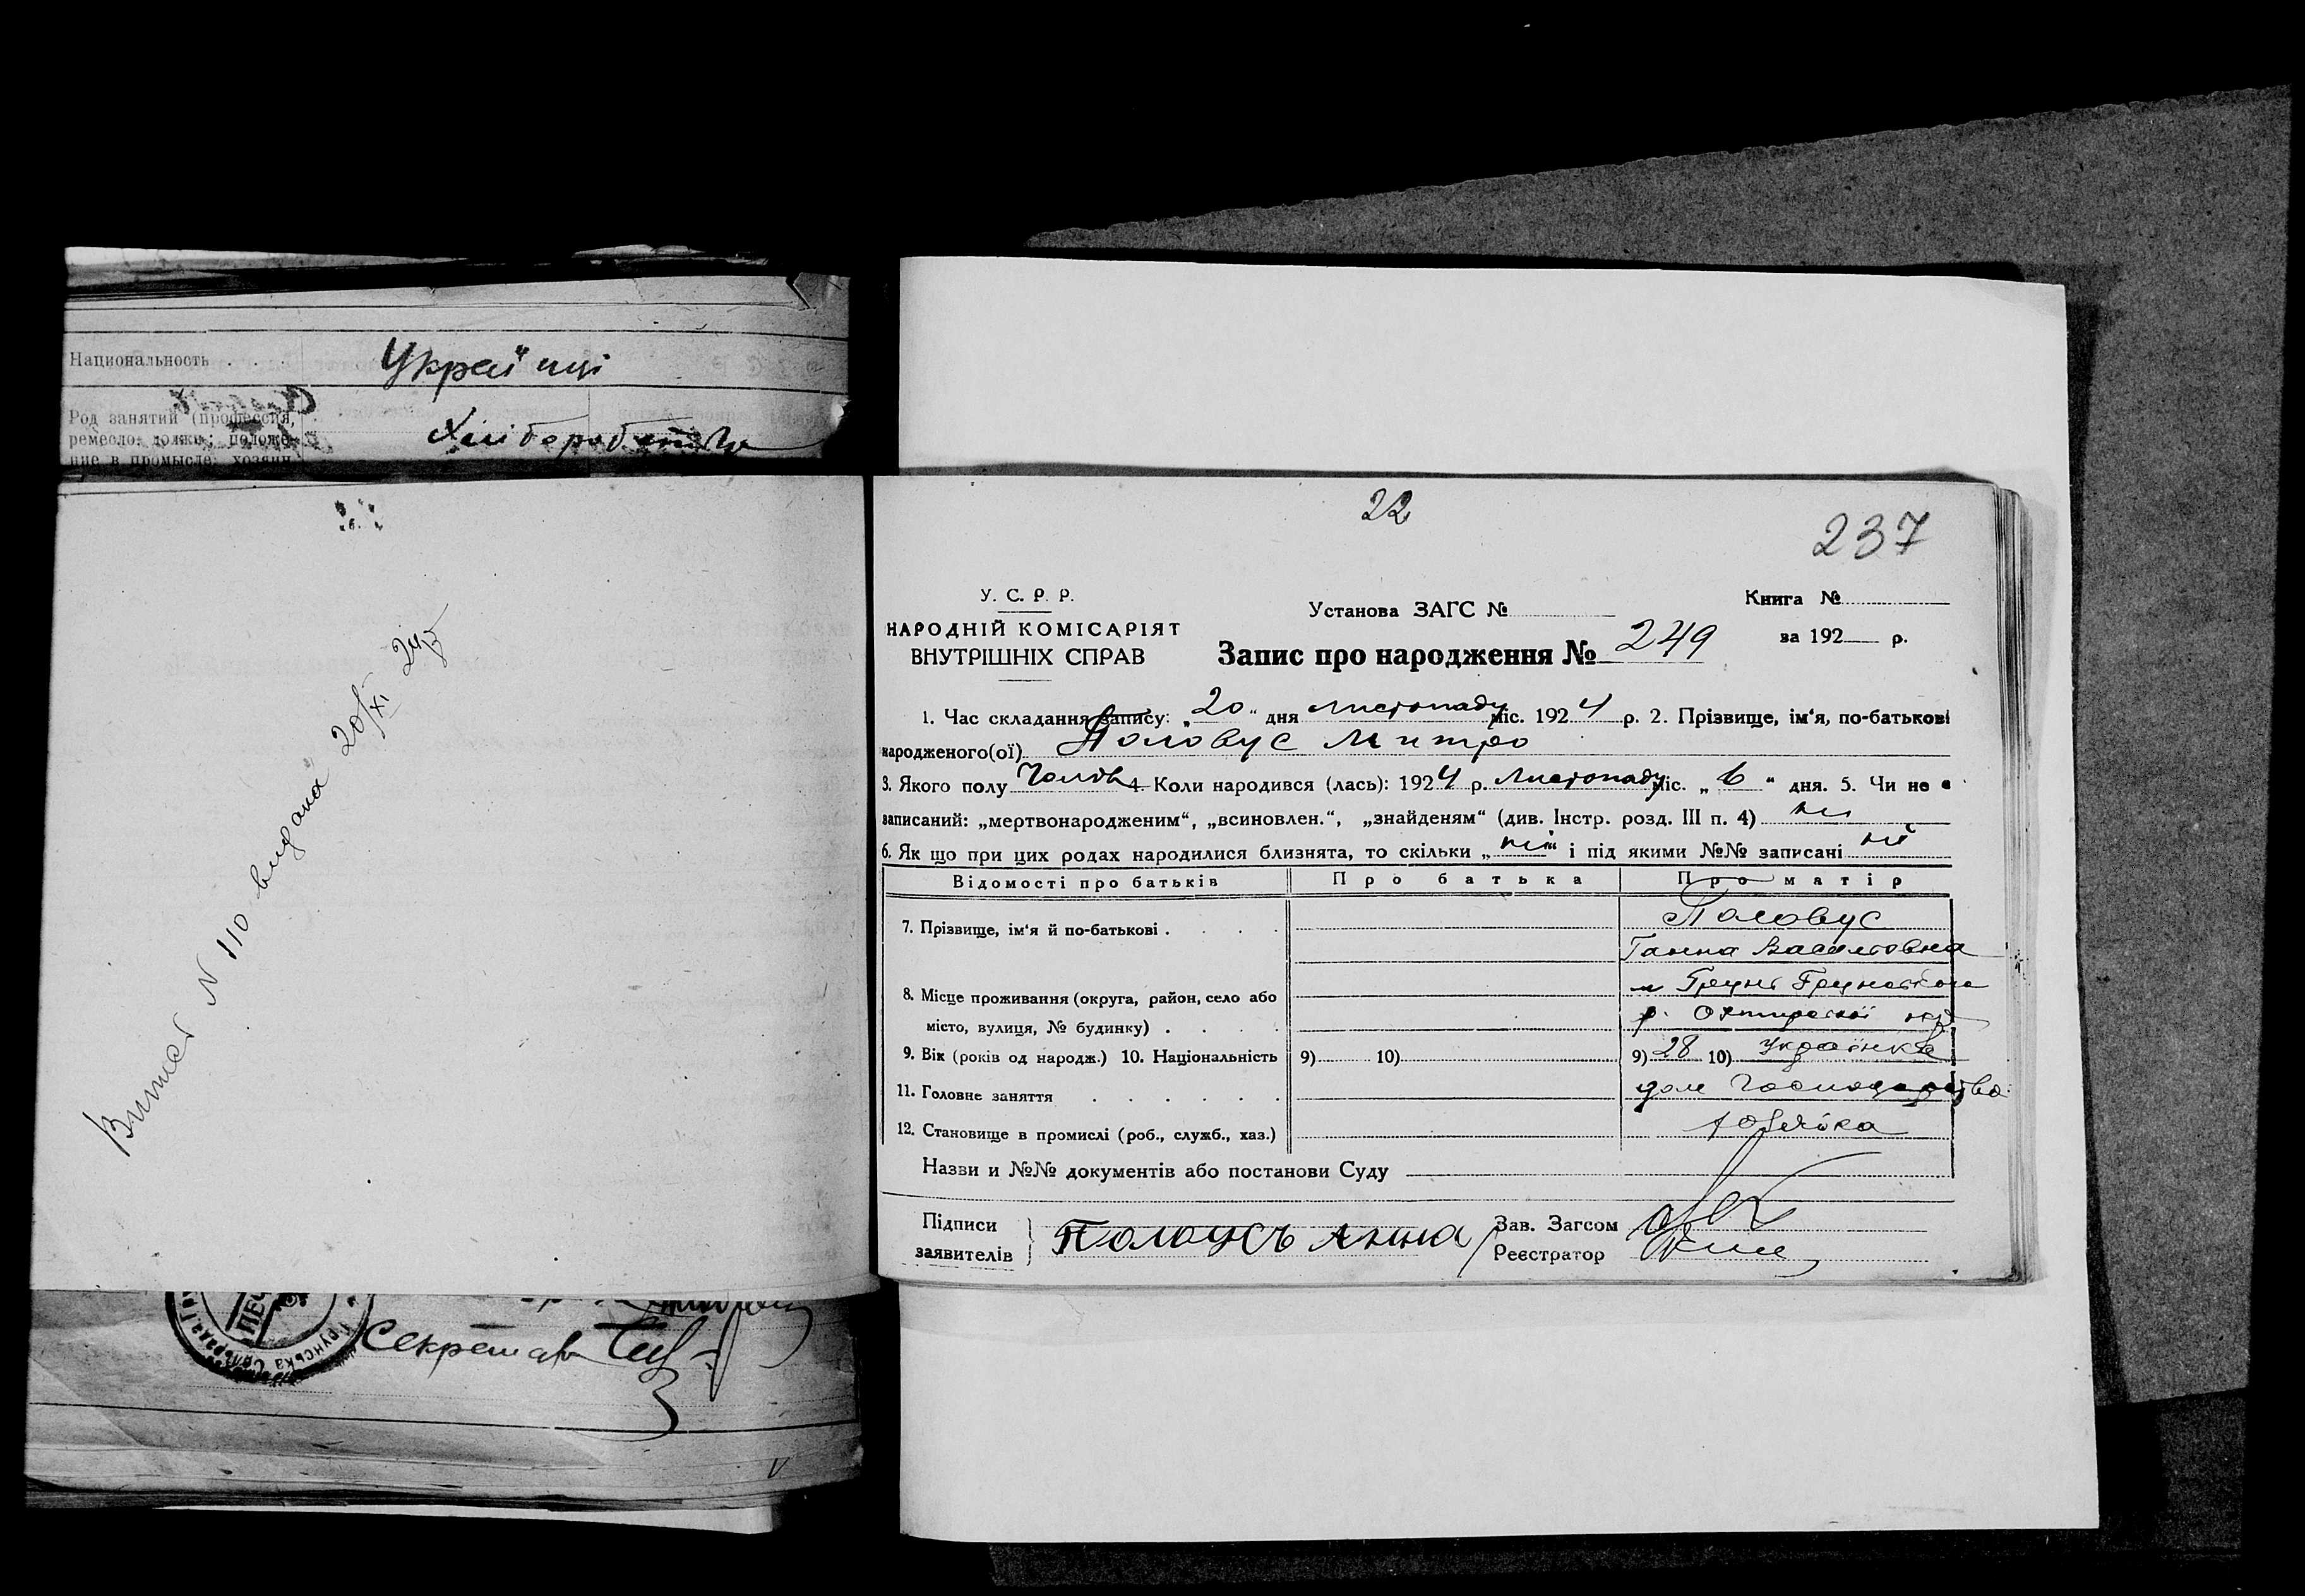 Национальность . . . Украї нці
Род занятий (профессия,
ремесло, должн.; положе-
ние в промысле: хозяин,
Хліборобство
Витяг N 110 видана 20/XI 24 р
Секретар
22
237
У. С. Р. Р.
НАРОДНІЙ КОМІСАРІЯТ
ВНУТРІШНІХ СПРАВ
Установа ЗАГС №
Книга №
за 192 р.
Запис про народження № 249
1. Час складання запису: „ 20 “ дня листопаду міс. 192 4 р. 2. Прізвище, ім‘я, по-батькові
народженого(ої) Половус Митро
3. Якого полу Чолов 4. Коли народився (лась): 192 4 р. листопаду міс. „ 6 “ дня. 5. Чи не є
записаний: „мертвонародженим“, „всиновлен.“, „знайденям“ (див. Інстр. розд. III п. 4) ні
6. Як що при цих родах народилися близнята, то скільки „ ні “ і під якими №№ записані ні
Відомості про батьків Про батька Про матір
7. Прізвище, ім‘я й по-батькові . . . . Половус
Ганна Васильовна
8. Місце проживання (округа, район, село або м Грунь Грунського
місто, вулиця, № будинку) . . . . р. Охтирської окр
9. Вік (років од народж.) 10. Національність 9) 10) 9) 28 10) Українка
11. Головне заняття . . . . . . дом господарство
12. Становище в промислі (роб., служб., хаз.) хазяйка
Назви и №№ документів або постанови Суду
Підписи
заявителів
Половусъ Анна
Зав. Загсом
Реєстратор